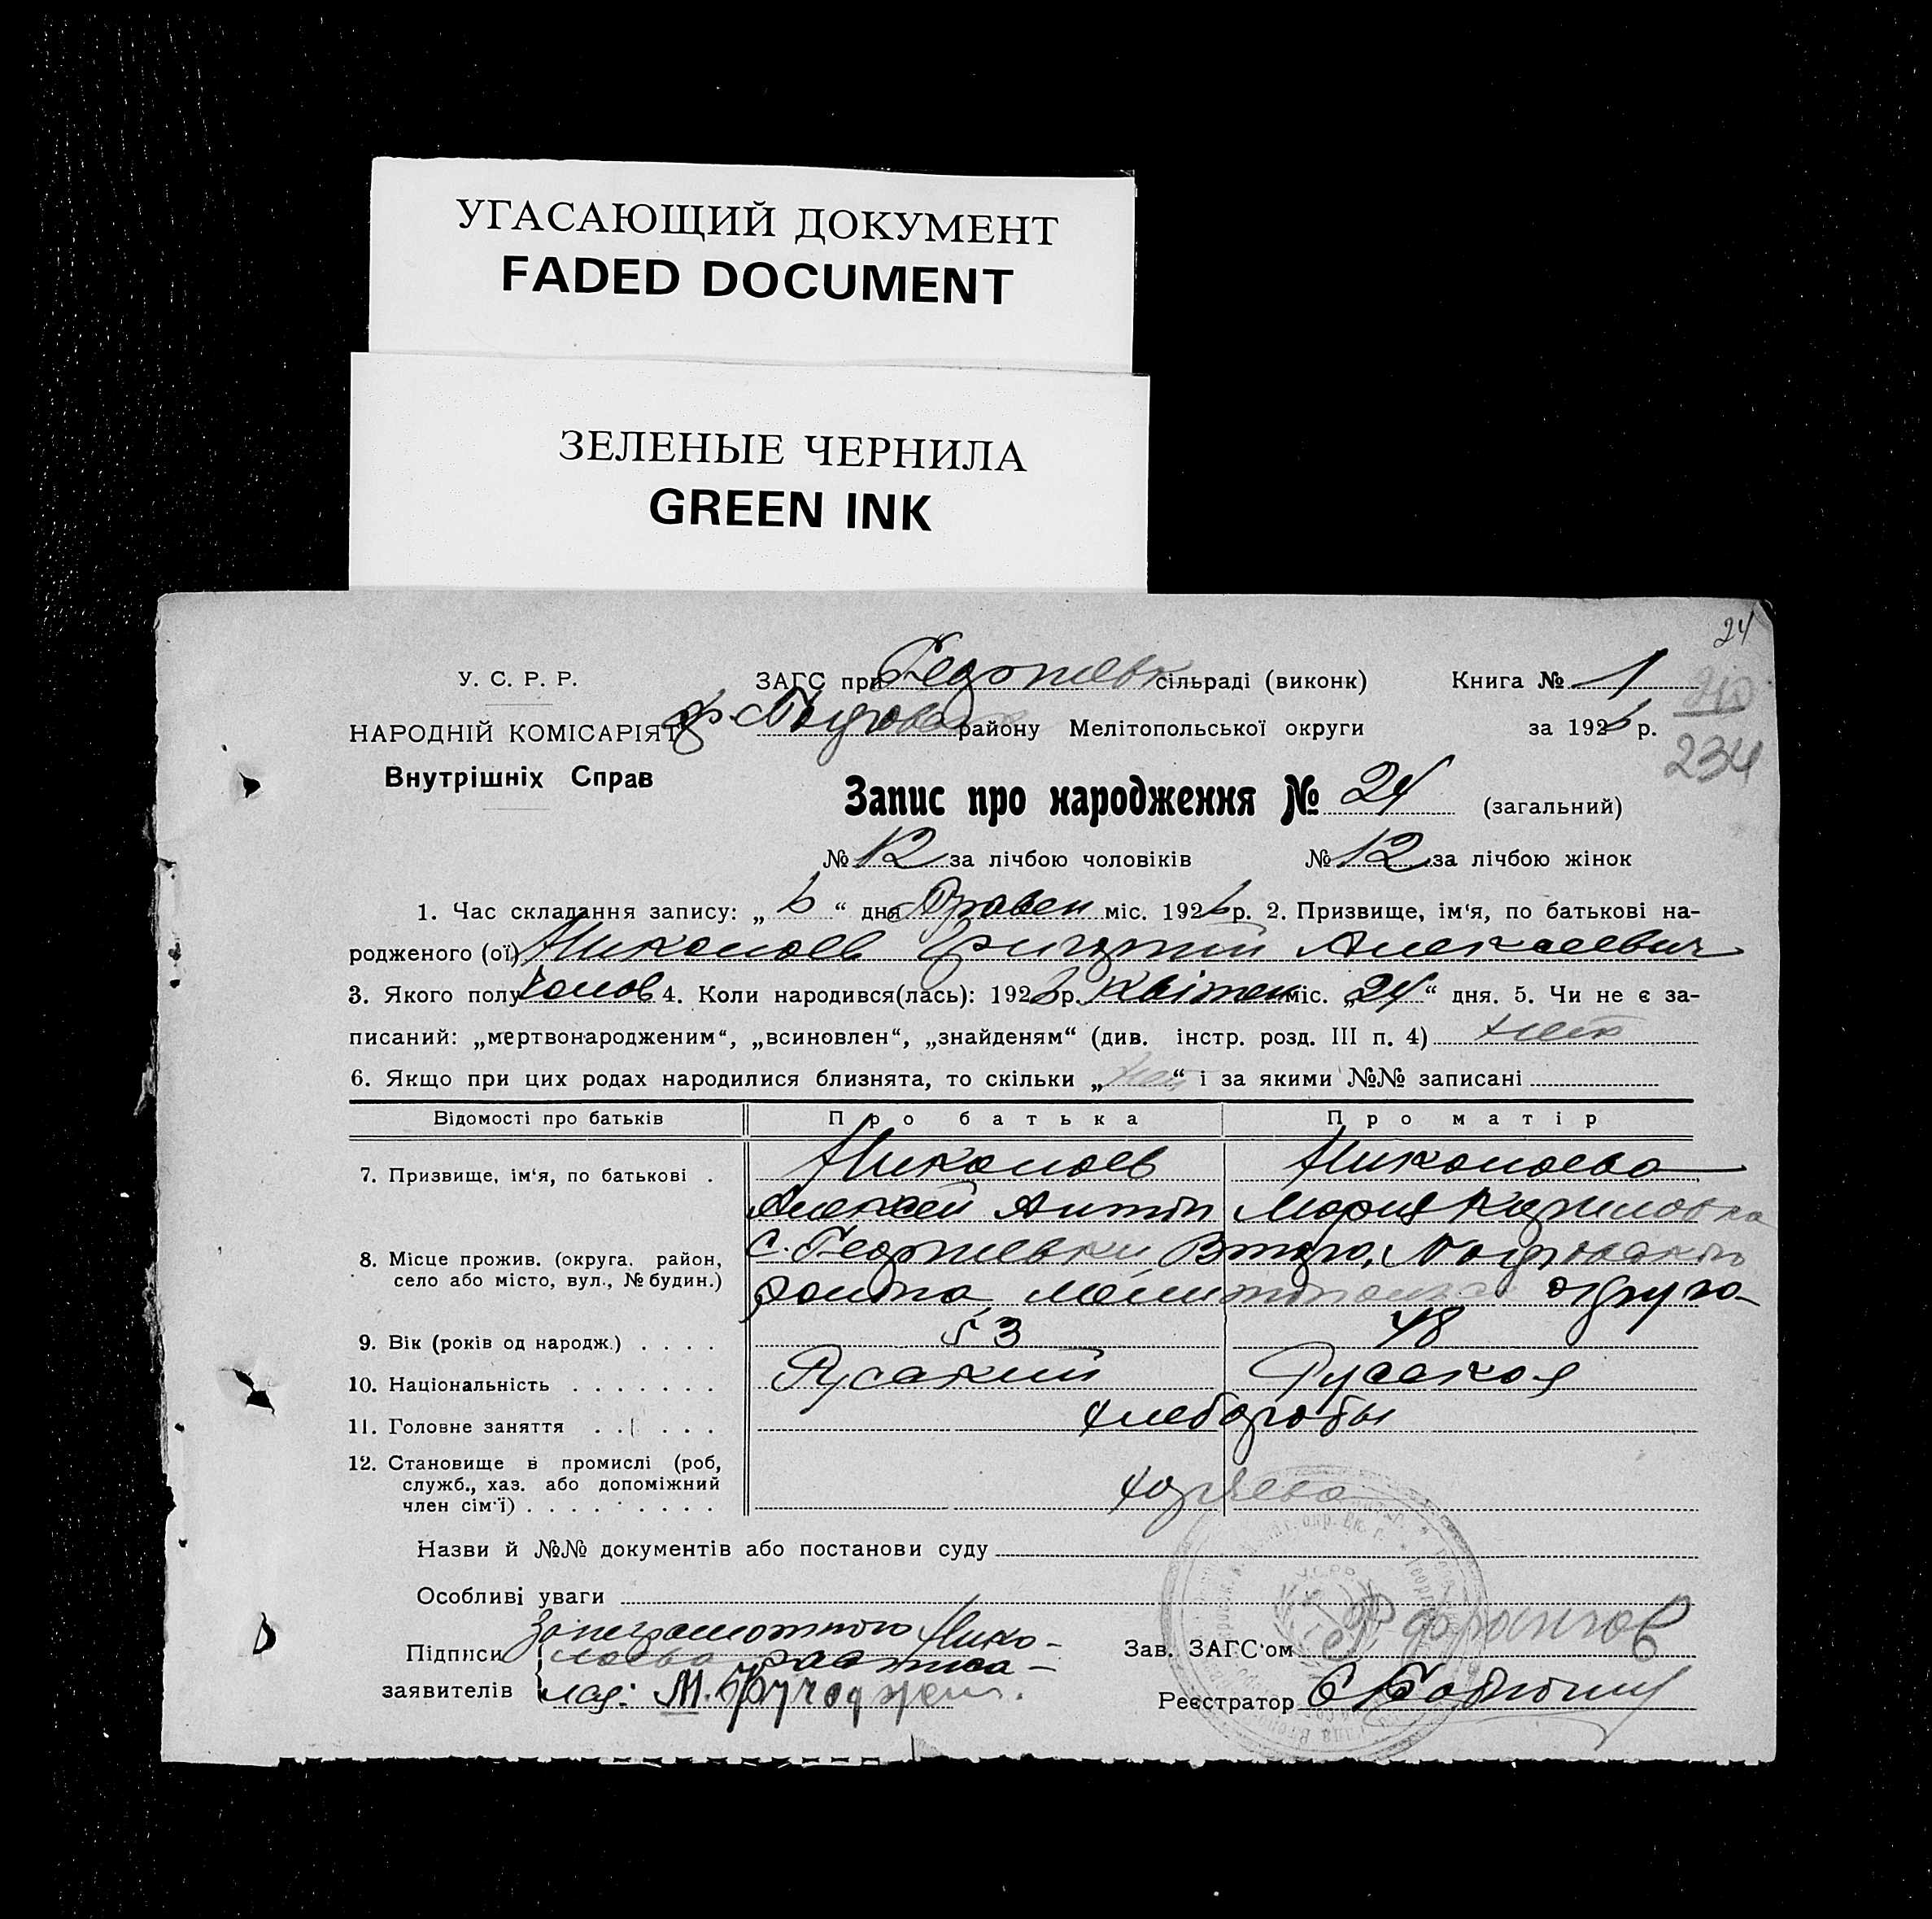 УГАСАЮЩИЙ ДОКУМЕНТ
FADED DOCUMENT
ЗЕЛЕНЫЕ ЧЕРНИЛА
GREEN INK
24
У. С. Р. Р.
НАРОДНІЙ КОМІСАРІЯТ
Внутрішніх Справ
ЗАГС при Георгиевк сільраді (виконк)
району Мелітопольської округи
Книга № 1
за 1926 р.
210
234
Запис про народження № 24 (загальний)
№ 12 за лічбою чоловіків № 12 за лічбою жінок
1. Час складання запису: „ 6 “ дня Травен міс. 1926 р. 2. Призвище, ім‘я, по батькові на-
родженого (ої) Николаев Григорий Алексеевич
3. Якого полу Чолов 4. Коли народився(лась): 1926 р. Квітен міс. „ 24 “ дня. 5. Чи не є за-
писаний: „мертвонародженим“, „всиновлен“, „знайденям“ (див. інстр. розд. III п. 4) нет
6. Якщо при цих родах народилися близнята, то скільки „ нет “ і за якими №№ записані
Відомості про батьків Про батька Про матір
7. Призвище, ім‘я, по батькові . Николаев Николаева
Алексей Антон Мария Кириловна
8. Місце прожив. (округа. район, село або місто, вул., № будин.) с. Георгиевки
района, округа
9. Вік (років од народж.) . . . . 53 48
10. Національність . . . . . . . Русский Русская
11. Головне заняття . . . . . хлеборобы
12. Становище в промислі (роб, служб., хаз. або допоміжний член сім‘ї) . . . . . . . . .
Назви й №№ документів або постанови суду
Особливі уваги
Підписи заявителів
За неграмотного Нико-
лаева расписа-
лся: М.
Зав. ЗАГС‘ом
Реєстратор